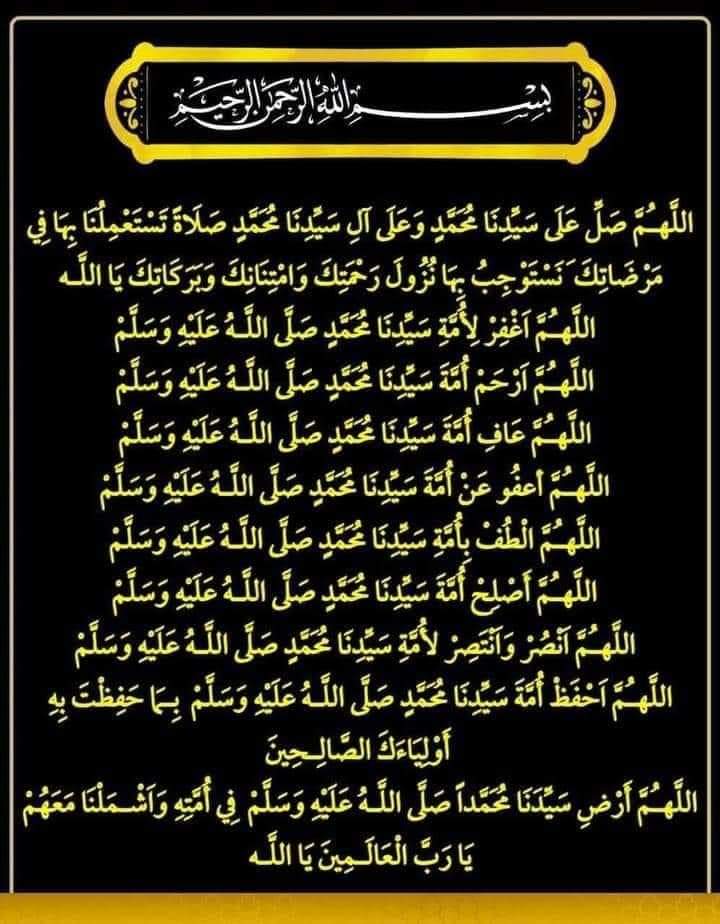 بِسْمِ اللهِ الرَّحْمٰنِ الرَّحِيْمِ
اللَّهُمَّ صَلِّ عَلَى سَيِّدِنَا مُحَمَّدٍ وَعَلَى آلِ سَيِّدِنَا مُحَمَّدٍ صَلَاةً تَسْتَعْمِلُنَا بِهَا فِي
مَرْضَاتِكَ نَسْتَوْجِبُ بِهَا نُزُولَ رَحْمَتِكَ وَامْتِنَانِكَ وَبَرَكَاتِكَ يَا اللَّـه
اللَّهُمَّ اَغْفِرْ لِأُمَّةِ سَيِّدِنَا مُحَمَّدٍ صَلَّى اللَّـهُ عَلَيْهِ وَسَلَّمْ
اللَّهُمَّ اَرْحَمْ أُمَّةَ سَيِّدِنَا مُحَمَّدٍ صَلَّى اللَّـهُ عَلَيْهِ وَسَلَّمْ
اللَّهُمَّ عَافِ أُمَّةَ سَيِّدِنَا مُحَمَّدٍ صَلَّى اللَّـهُ عَلَيْهِ وَسَلَّمْ
اللَّهُمَّ أعفُو عَنْ أُمَّةَ سَيِّدِنَا مُحَمَّدٍ صَلَّى اللَّـهُ عَلَيْهِ وَسَلَّمْ
اللَّهُمَّ الْطُفْ بِأُمَّةِ سَيِّدِنَا مُحَمَّدٍ صَلَّى اللَّـهُ عَلَيْهِ وَسَلَّمْ
اللَّهُمَّ أَصْلِحْ أُمَّةَ سَيِّدِنَا مُحَمَّدٍ صَلَّى اللَّـهُ عَلَيْهِ وَسَلَّمْ
اللَّهُمَّ اَنْصُرْ وَانْتَصِرْ لأُمَّةِ سَيِّدِنَا مُحَمَّدٍ صَلَّى اللَّـهُ عَلَيْهِ وَسَلَّمْ
اللَّهُمَّ اَحْفَظْ أُمَّةَ سَيِّدِنَا مُحَمَّدٍ صَلَّى اللَّـهُ عَلَيْهِ وَسَلَّمْ بِـمَا حَفِظْتَ بِهِ
أَوْلِيَاءَكَ الصَّالِـحِينَ
اللَّهُمَّ أَرْضِ سَيِّدَنَا مُحَمَّداً صَلَّى اللَّـهُ عَلَيْهِ وَسَلَّمْ فِي أُمَّتِهِ وَاَشْـمَلْنَا مَعَهُمْ
يَا رَبَّ الْعَالَـمِينَ يَا اللَّـه